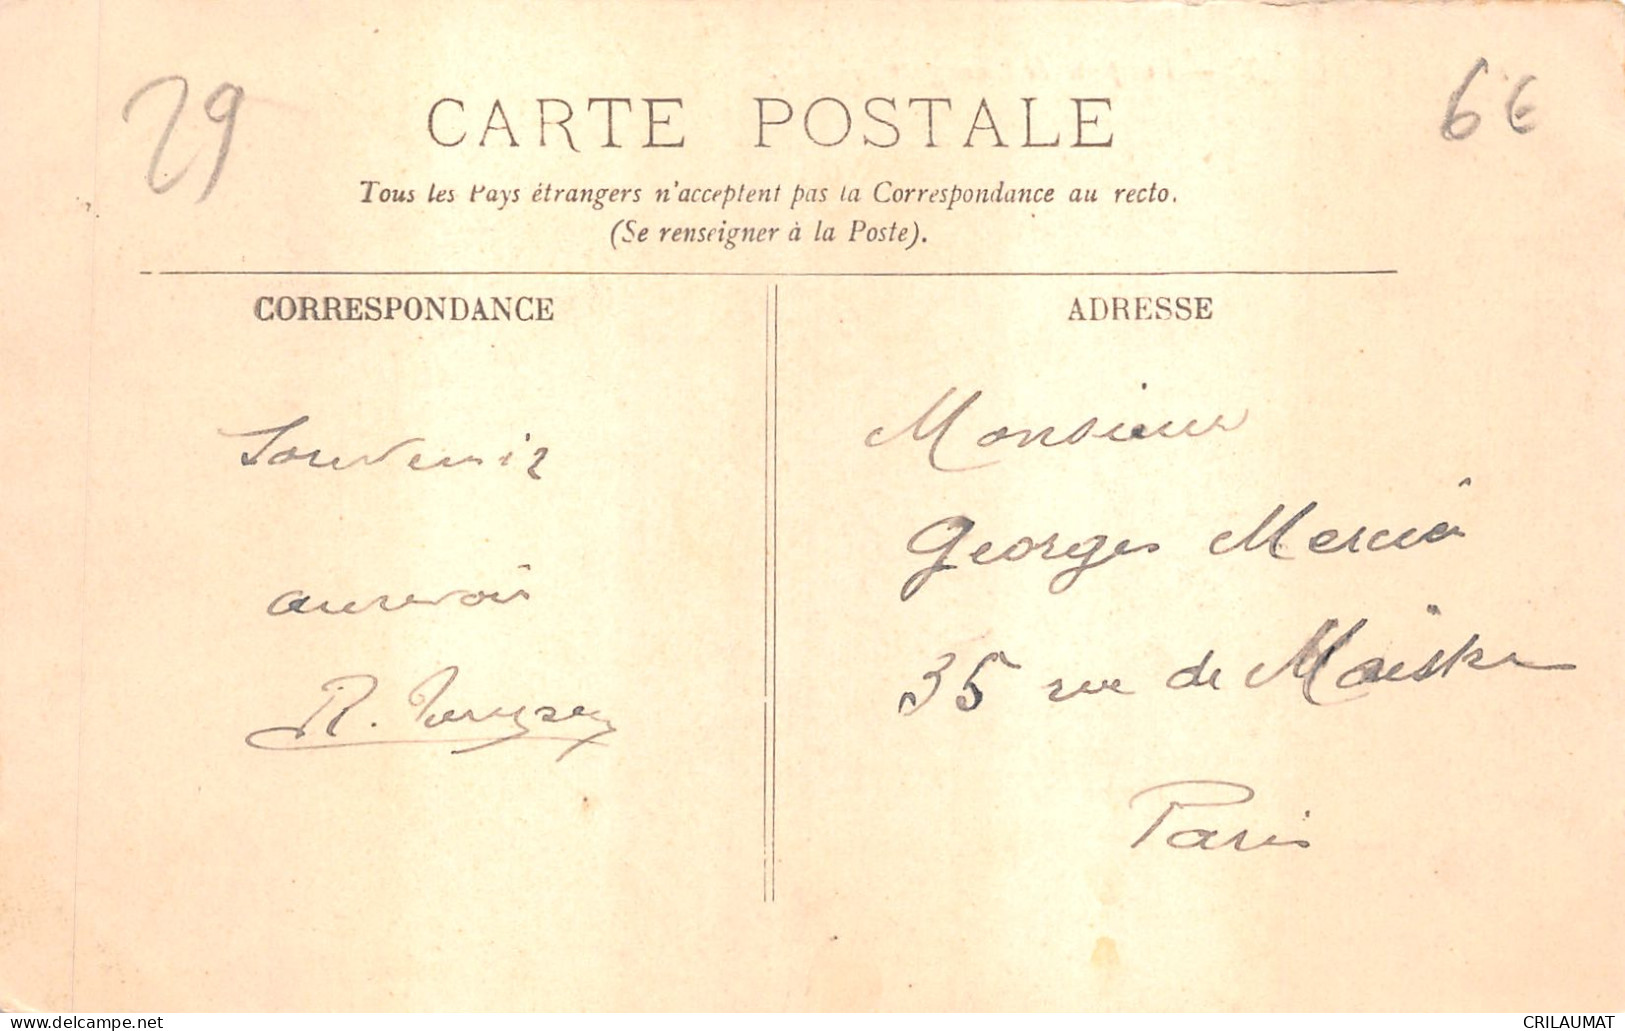 29
6€
CARTE POSTALE
Tous les Pays étrangers n'acceptent pas la Correspondance au recto.
(Se renseigner à la Poste).
CORRESPONDANCE
Souvenir
aurevoir
R.
ADRESSE
Monsieur
Georges
35 rue de
Paris
www.delcampe.net
CRILAUMAT